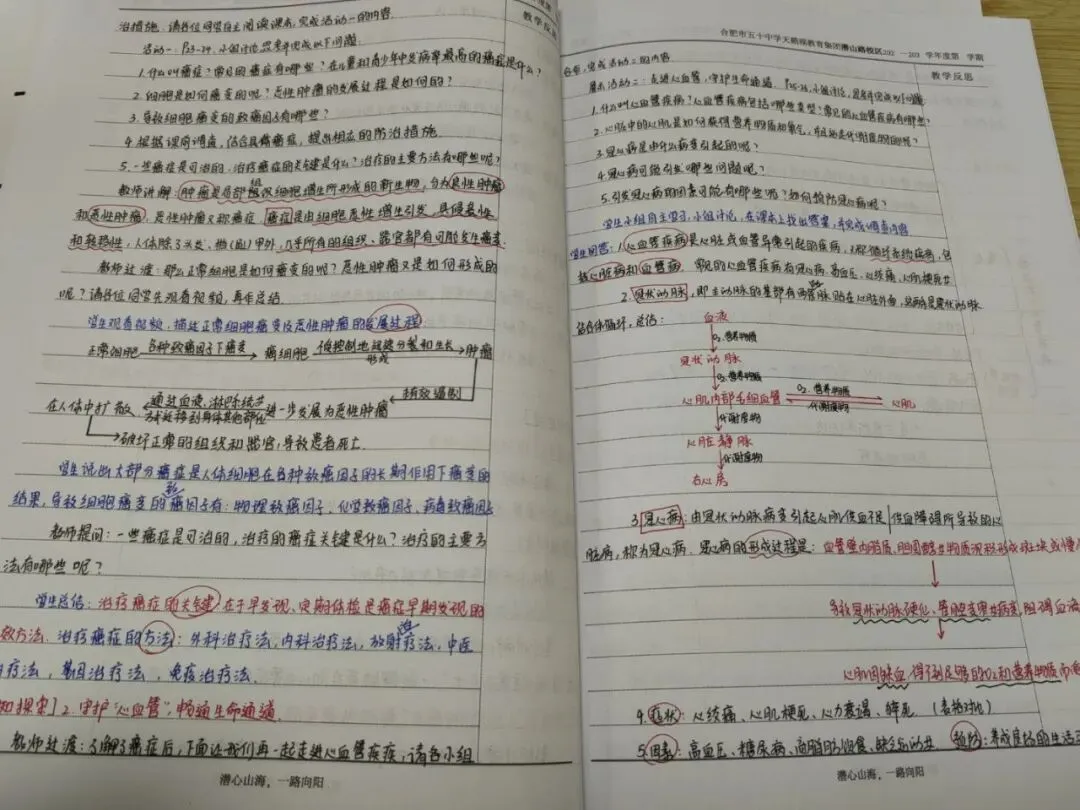 教学反思
治措施。请各位同学自主阅读课本,完成活动一的内容.
活动一:P23-24,小组讨论,思考并完成以下问题.
1.什么叫癌症?常见的癌症有哪些?在儿童和青少年中发病率最高的癌症是什么?
2.细胞是如何癌变的呢?恶性肿瘤的发展过程是如何的?
3.导致细胞癌变的致癌因子有哪些?
4.根据课前调查,结合具体癌症,提出相应的防治措施.
5.一些癌症是可治的,治疗癌症的关键是什么?治疗的主要方法有哪些呢?
教师讲解:肿瘤是局部组织细胞增生所形成的新生物,分为良性肿瘤
和恶性肿瘤,恶性肿瘤又称癌症.癌症是由细胞恶性增生引发,具侵袭性
和转移性,人体除了头发、指(趾)甲外,几乎所有的组织、器官都有可能发生癌变.
教师过渡:那么正常细胞是如何癌变的呢?恶性肿瘤又是如何形成的
呢?请各位同学先观看视频,再作总结.
学生观看视频,描述正常细胞癌变及恶性肿瘤的发展过程:
正常细胞 各种致癌因子下癌变 癌细胞 不受控制地迅速分裂和生长 形成 肿瘤
未有效遏制
在人体中扩散 通过血液、淋巴系统等方式迁移到身体其他部位 进一步发展为恶性肿瘤
破坏正常的组织和器官,导致患者死亡.
学生说出大部分癌症是人体细胞在各种致癌因子的长期作用下癌变的
结果,导致细胞癌变的致癌因子有:物理致癌因子、化学致癌因子、病毒致癌因子
教师提问:一些癌症是可治的,治疗的癌症关键是什么?治疗的主要方
法有哪些呢?
学生总结:治疗癌症的关键在于早发现、定期体检是癌症早期发现的
效方法.治疗癌症的方法:外科治疗法,内科治疗法,放射治疗法,中医
疗法,基因治疗法,免疫治疗法.
知探索]2.守护“心血管”,畅通生命通道.
教师过渡:了解了癌症后,下面让我们再一起走进心血管疾病,请各小组
潜心山海,一路向阳
合肥市五十中学天鹅湖教育集团潜山路校区202 —203 学年度第 学期
教学反思
合作,完成活动二的内容.
展示活动二:走进心血管,守护生命通道.P25-26,小组讨论,思考并完成以下问题
1.什么叫心血管疾病?心血管疾病包括哪些类型?常见的心血管疾病有哪些?
2.心脏中的心肌是如何获得营养物质和氧气,并运走代谢废物的呢?
3.冠心病是由什么病变引起的呢?
4.冠心病可能引发哪些问题呢?
5.引发冠心病的因素可能有哪些呢?如何预防冠心病呢?
学生小组自主学习,小组讨论,在课本上找出答案,并完成调查内容
学生回答:1.心血管疾病是心脏或血管异常引起的疾病,又称循环系统疾病,包
括心脏病和血管病.常见的心血管疾病有冠心病、高血压、心绞痛、心肌梗死等
2.冠状动脉,即主动脉的基部有两条动脉贴在心脏外面,名称是冠状动脉
结合体循环,总结:
血液
O₂.营养物质
冠状动脉
O₂.营养物质
心肌内部毛细血管 O₂.营养物质 代谢废物 心肌
代谢废物
心脏静脉
代谢废物
右心房
3.冠心病:由冠状动脉病变引起心肌供血不足,供血障碍所导致的心
脏病,称为冠心病.冠心病的形成过程是:血管壁内脂质、胆固醇等物质沉积形成斑块或慢
导致冠状动脉硬化、管腔变窄等病变,阻调血液
心肌因缺血,得不到足够的O₂和营养物质而
4.症状:心绞痛、心肌梗死、心力衰竭、猝死 (表格对比)
5.因素:高血压、糖尿病、高脂肪饮食、缺乏运动等 预防:养成良好的生活
潜心山海,一路向阳